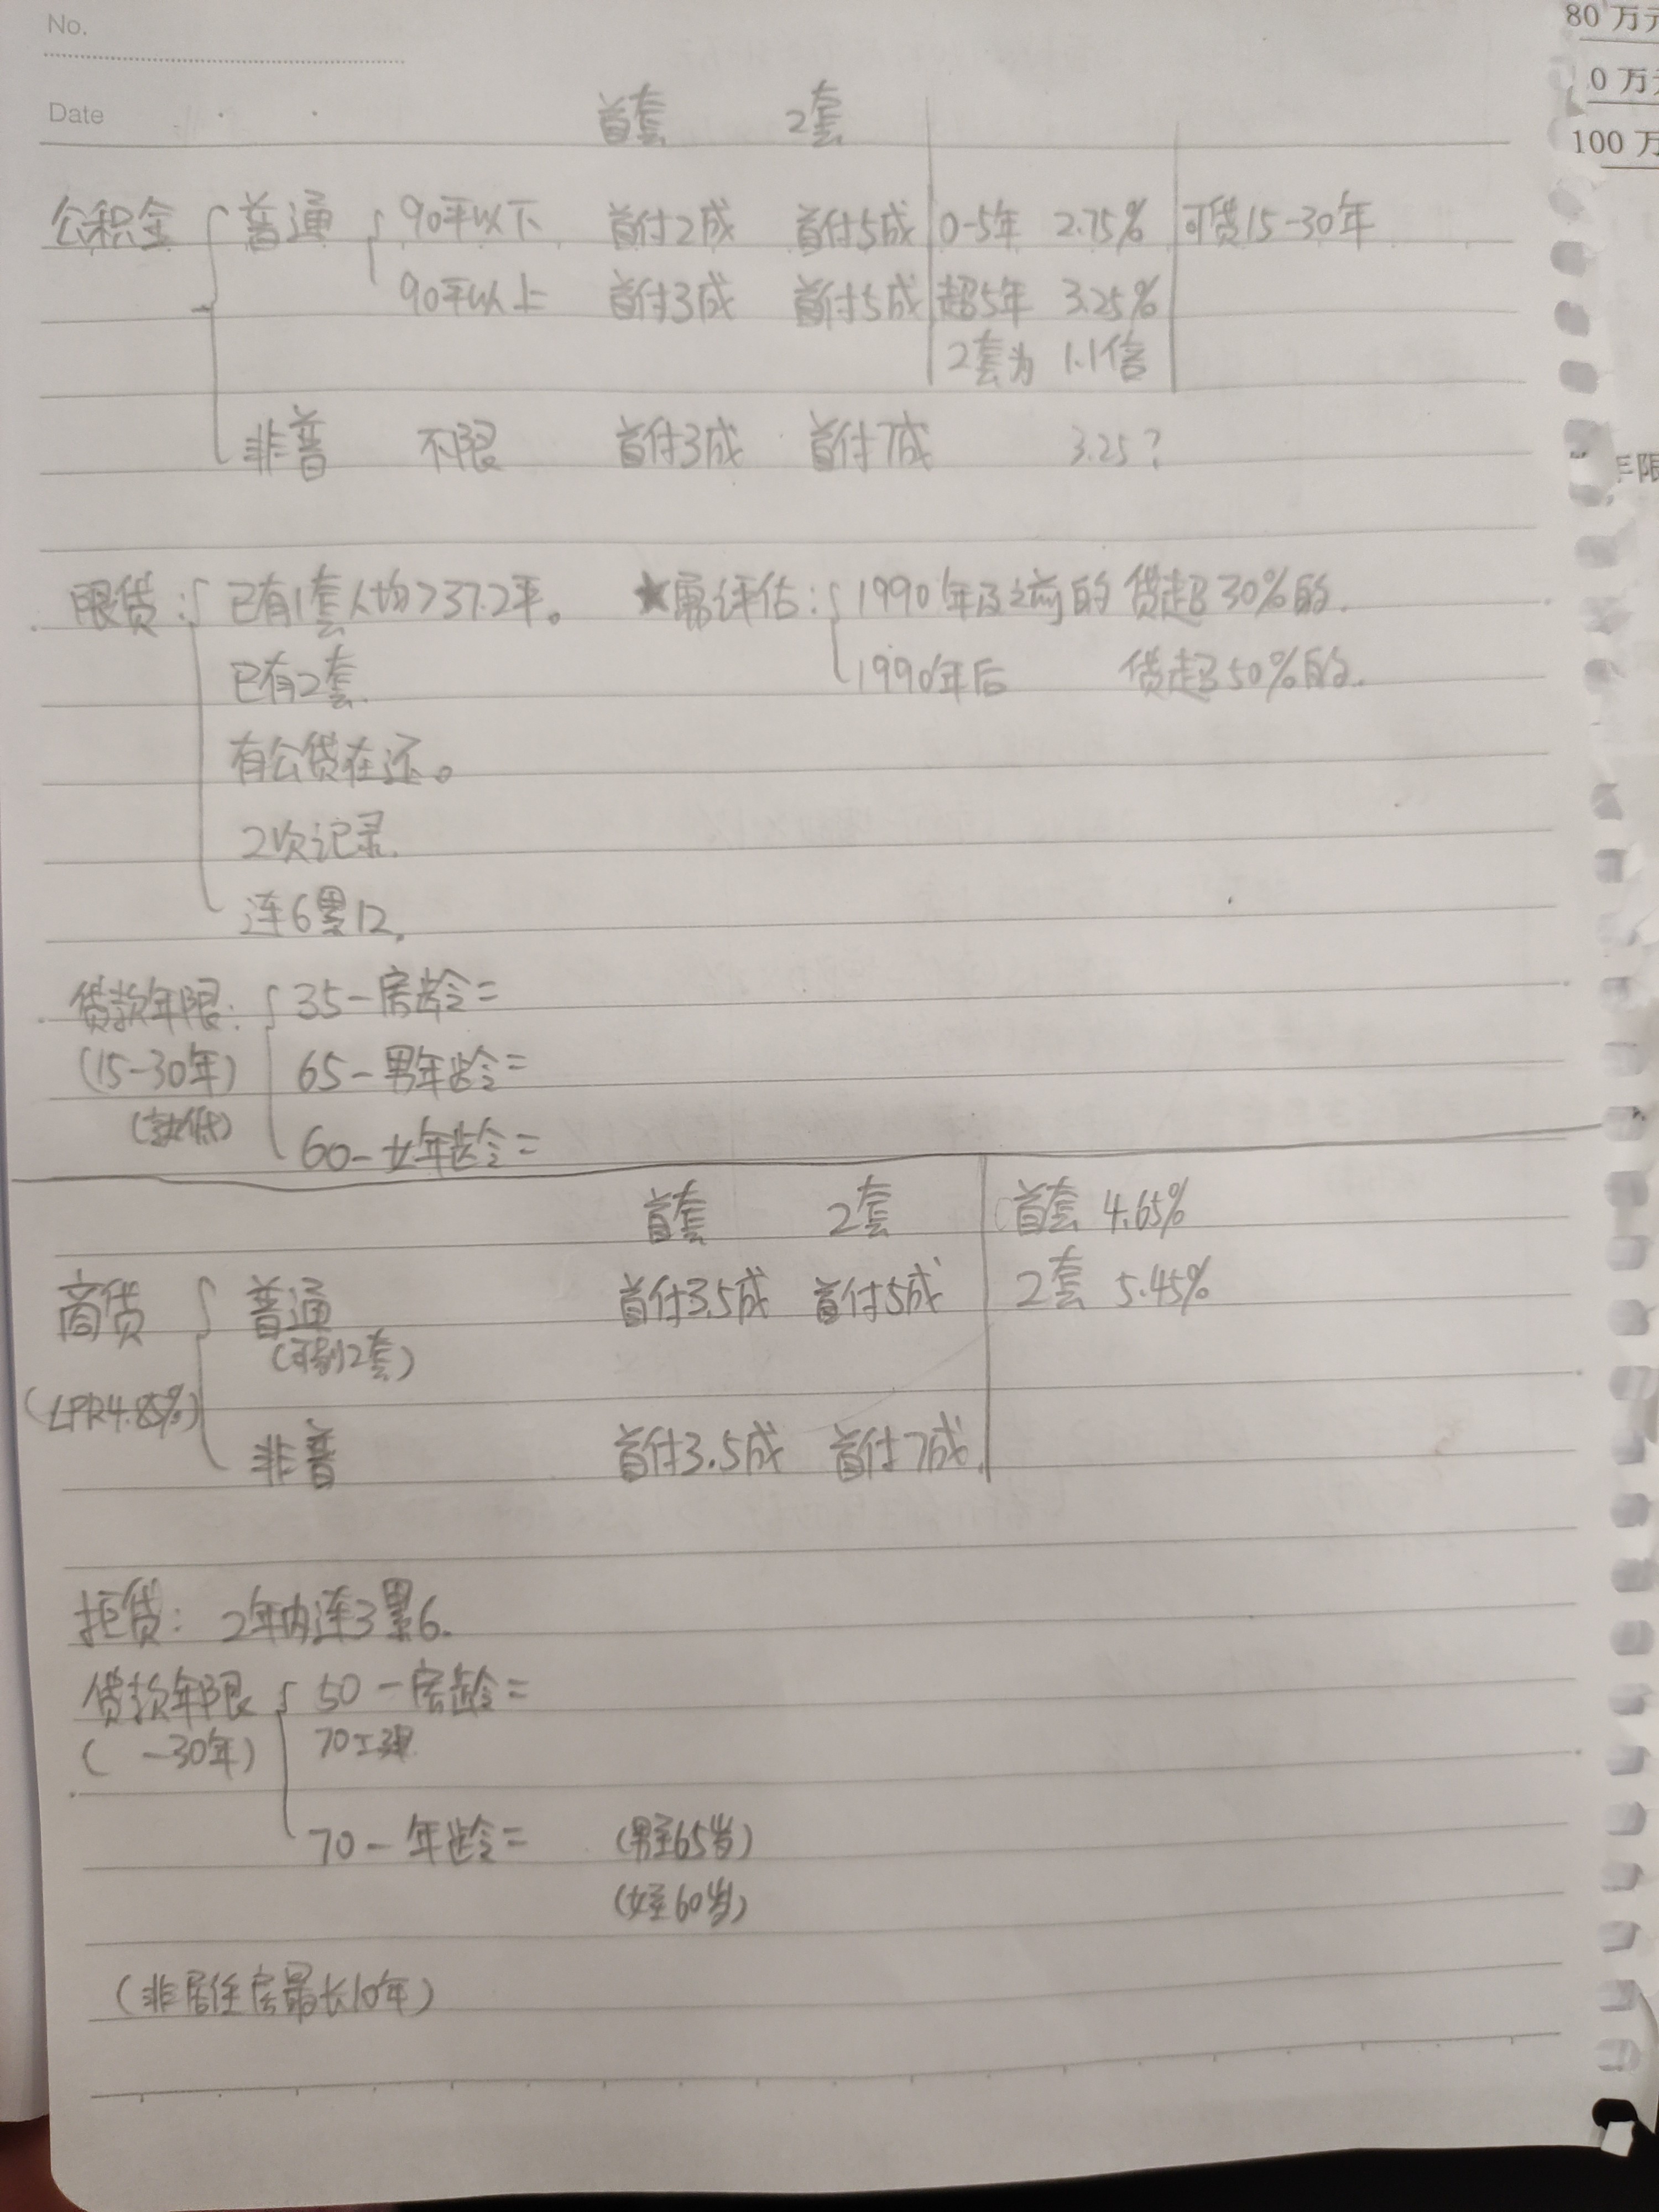 No.
80 万
0 万
Date
首套 2套
100 万
公积金 普通 90平以下 首付2成 首付5成 0-5年 2.75% 可贷15-30年
90平以上 首付3成 首付5成 超5年 3.25%
2套为 1.1倍
非普 不限 首付3成 首付7成 3.25?
年限
限贷: 已有1套人均>37.2平。 ★需评估: 1990年及之前的 贷超30%的.
已有2套. 1990年后 贷超50%的.
有公贷在还。
2次记录.
连6累12.
贷款年限: 35-房龄=
(15-30年) 65-男年龄=
(就低) 60-女年龄=
首套 2套 首套 4.65%
商贷 普通 首付3.5成 首付5成 2套 5.45%
2套)
(LPR4.85%)
非普 首付3.5成 首付7成.
拒贷: 2年内连3累6.
贷款年限 50-房龄=
( -30年) 70工
70-年龄= (男至65岁)
(女至60岁)
(非居住房最长10年)